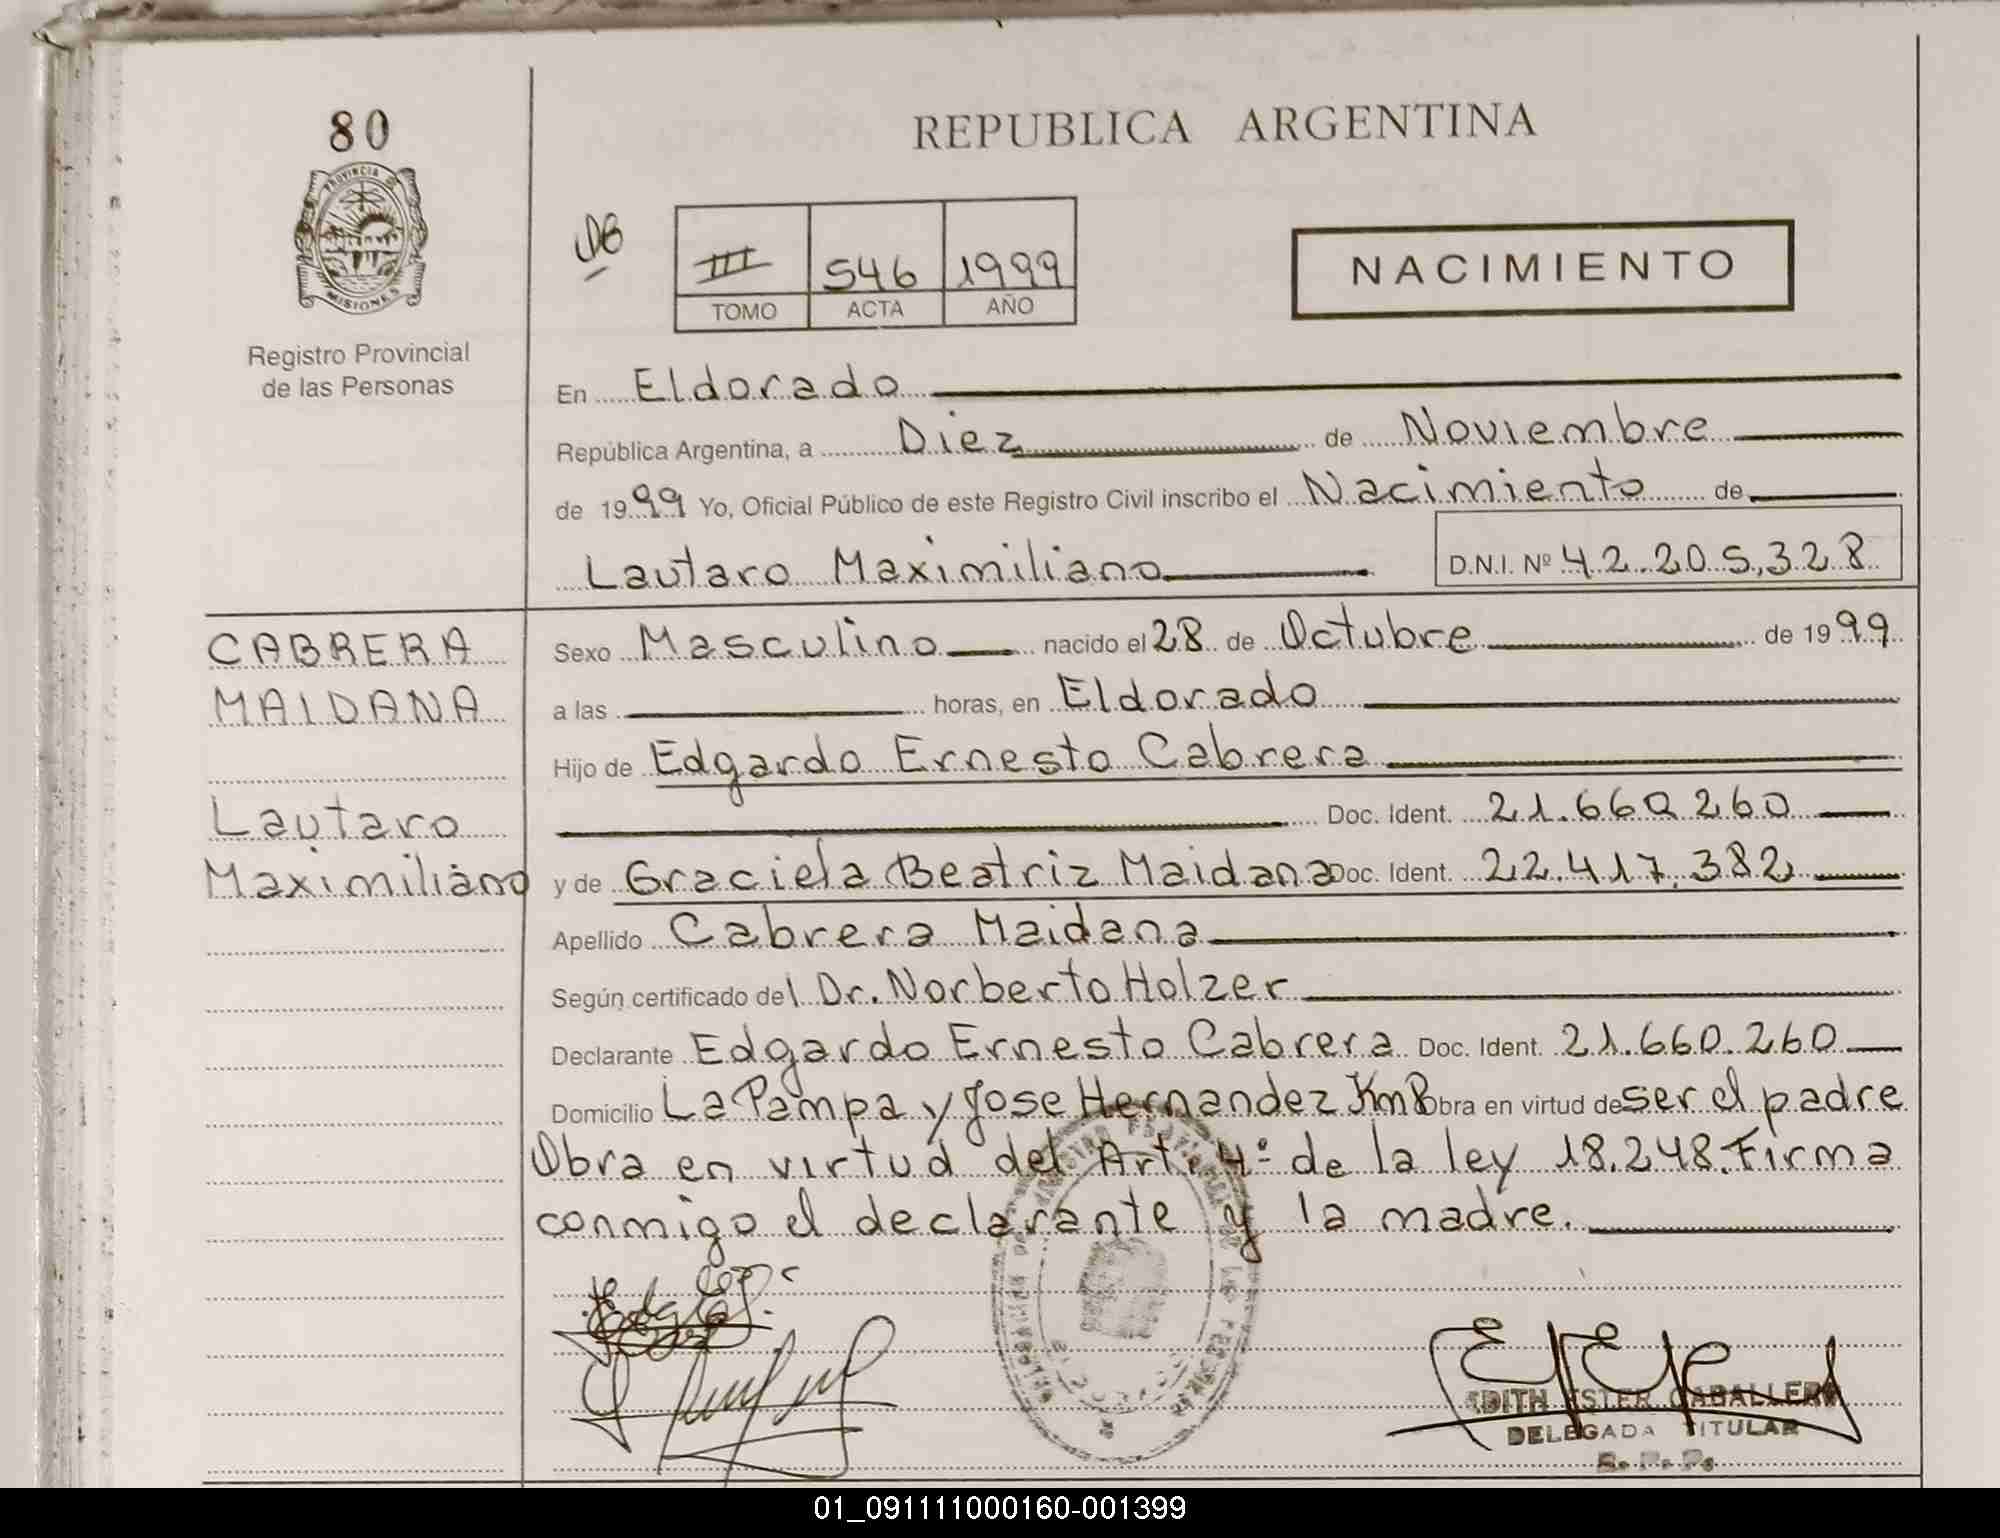 80
REPUBLICA ARGENTINA
PROVINCIA DE
MISIONES
III 546 1999
TOMO ACTA AÑO
NACIMIENTO
Registro Provincial
de las Personas
En Eldorado
República Argentina, a Diez de Noviembre
de 1999 Yo, Oficial Público de este Registro Civil inscribo el Nacimiento de
Lautaro Maximiliano D.N.I. Nº 42.205.328
CABRERA
MAIDANA
Lautaro
Maximiliano
Sexo Masculino nacido el 28 de Octubre de 1999
a las horas, en Eldorado
Hijo de Edgardo Ernesto Cabrera
Doc. Ident. 21.660.260
y de Graciela Beatriz Maidana Doc. Ident. 22.417.382
Apellido Cabrera Maidana
Según certificado del Dr. Norberto Holzer
Declarante Edgardo Ernesto Cabrera Doc. Ident. 21.660.260
Domicilio La Pampa y Jose Hernandez Km8 Obra en virtud de ser el padre
Obra en virtud del Art. 4º de la ley 18.248. Firma
conmigo el declarante y la madre.
EDITH ESTER CABALLERO
DELEGADA TITULAR
R. P. P.
01_091111000160-001399